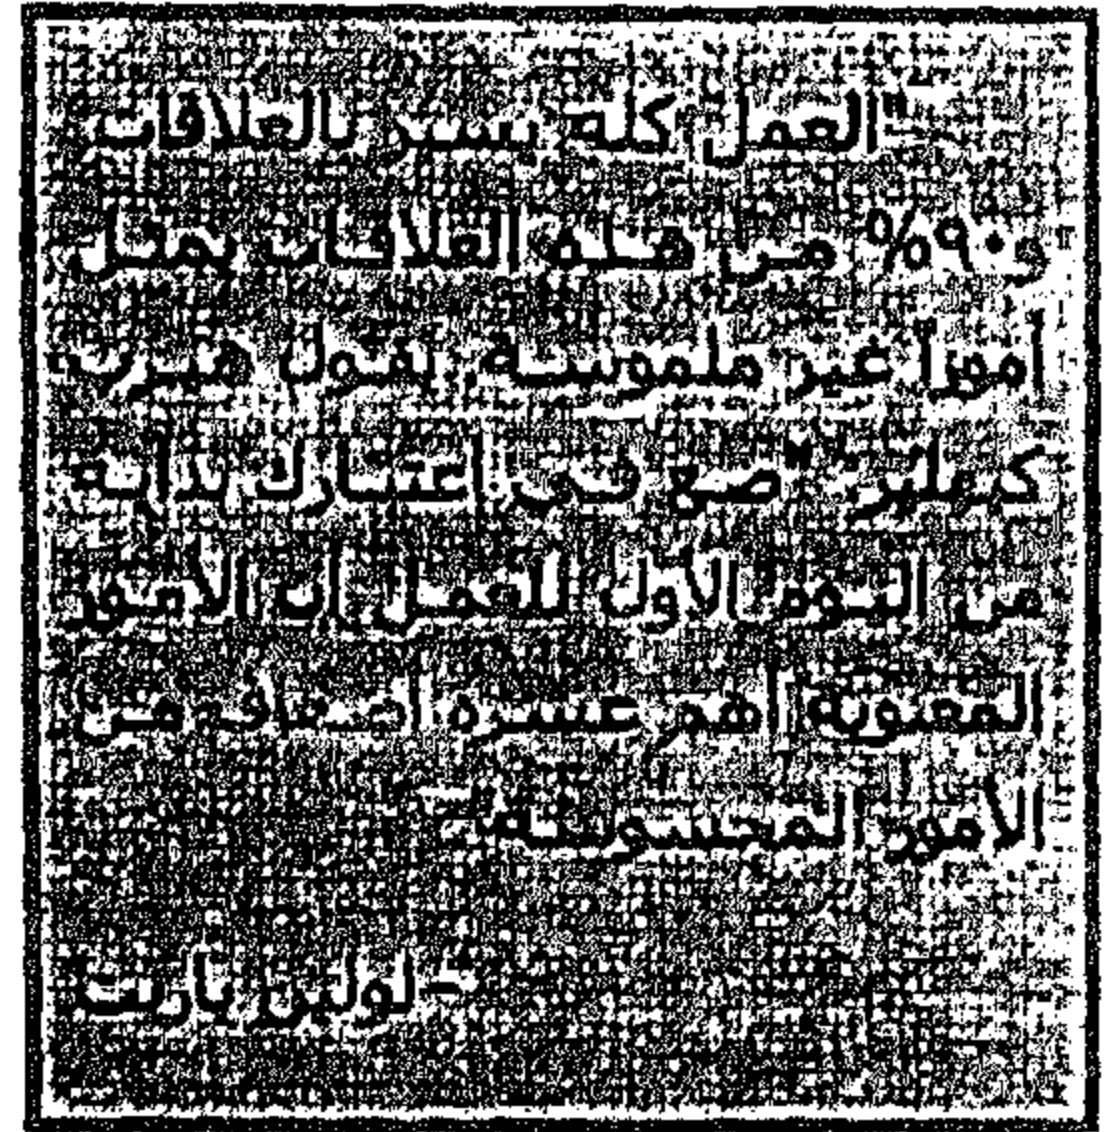 "العمل كله يسير بالعلاقات
و٩٠% من هذه العلاقات يمثل
أمورا غير ملموسة. يقول هيرب
كيهلير "ضع في اعتبارك بداية
من اليوم الأول للعمل أن الأمور
المعنوية أهم عشرة أضعاف من
الأمور المحسوسة".
- لولين باريت